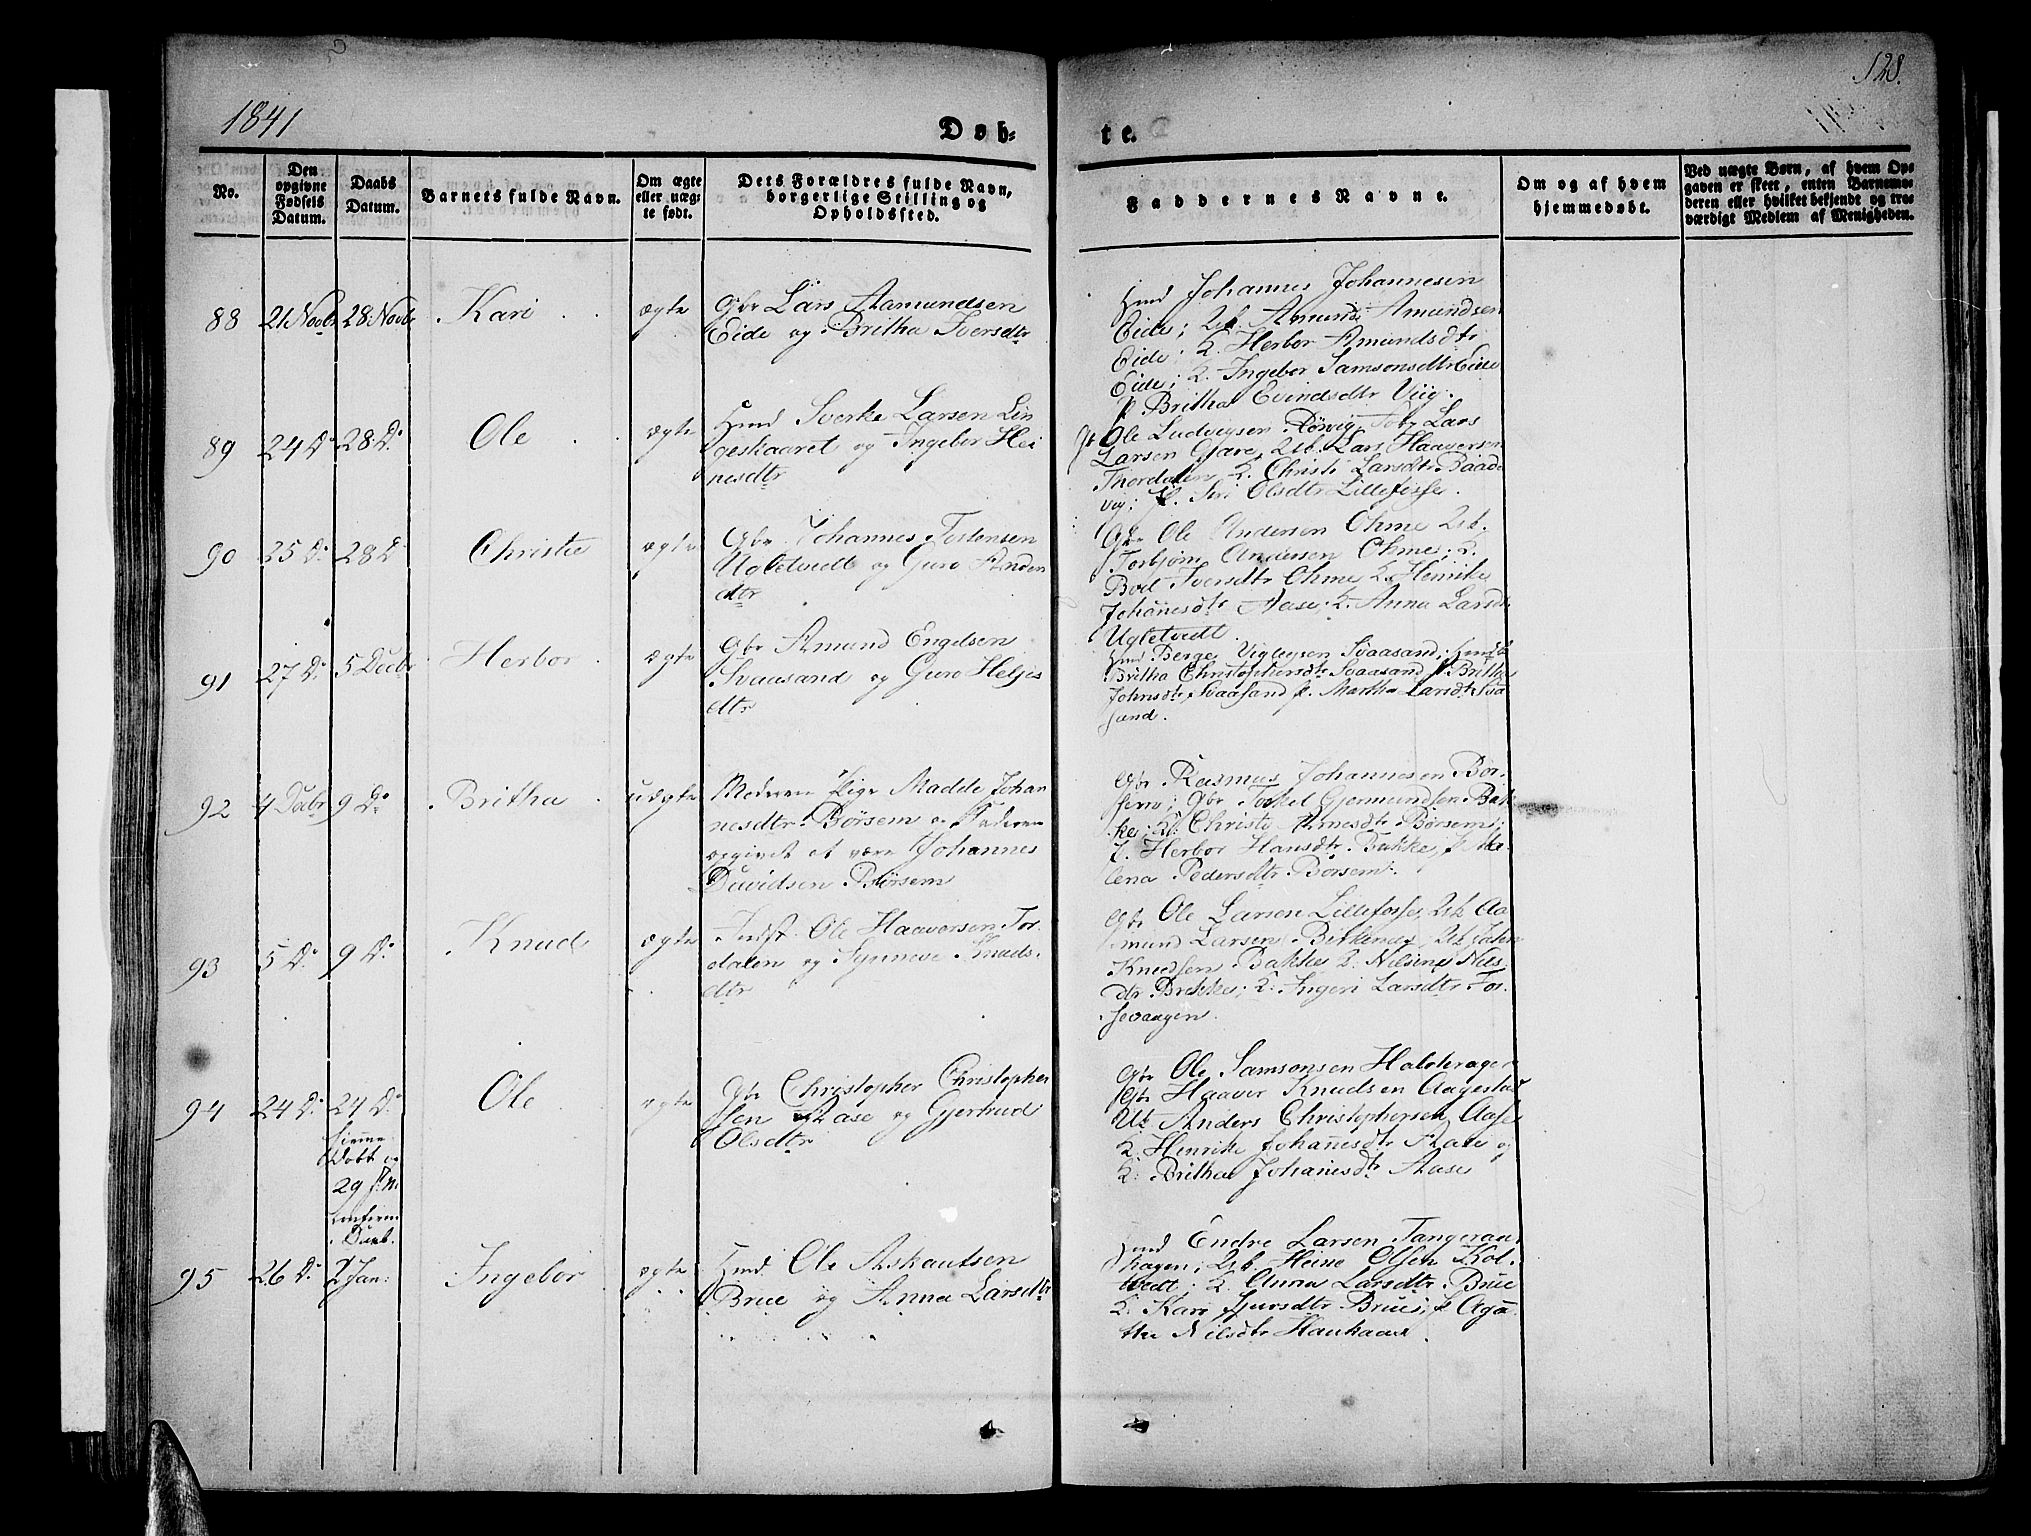 128.
1841
Døb-
te.
No.
Den opgivne Fødsels Datum.
Daabs Datum.
Barnets fulde Navn.
Om ægte eller uægte født.
Dets Forældres fulde Navn, borgerlige Stilling og Opholdssted.
Faddernes Navne.
Om og af hvem hjemmedøbt.
Ved uægte Børn, af hvem Opgaven er skeet, enten Barnemoderen eller hvilket bekjendt og troværdigt Medlem af Menigheden.
88
21 Novbr
28 Novbr
Kari
ægte
Gbr Lars Aamundsen
Eide og Britha Iversdtr
Hmd Johannes Johannesen
Eide; Ub. Amund Amundsen
Eide; P. Herbor Amundsdtr
Eide; P. Ingebor Samsonsdtr Eide
P Britha Evindsdtr Viig.
89
24 Do
28 Do
Ole
ægte
Hmd Sverke Larsen Lin
geskaaret og Ingebor Hei
nesdtr
Gbr Ole Ludvigsen Lars
Larsen Gjære, Ub. Lars Haaversen
Thordalen, P. Christi Larsdtr Baade
vig; P. Siri Olsdtr Lillefosse.
90
25 Do
28 D
Christie
ægte
Gbr. Johannes Tostensen
Ugletvedt og Guro Anders
dtr
Gbr Ole Andersen Ohme Ub.
Torbjørn Andersen Ohme; P.
Bod Iversdtr Ohme P. Henrike
Johanesdtr Aase; P. Anna Larsdt
Ugletvedt.
91
27 Do
5 Decbr
Herbor
ægte
Gbr Amund Engelsen
Svaasand og Guro Heljes
dtr
Hmd Berge Vigleysen Svaasand;
Britha Christophersdtr Svaasand P Britha
Johnsdtr Svaasand P. Martha Larsdtr Svaa
sand.
92
4 Decbr
9 Do
Britha
uægte
Moderen Pige Madde Johan
nesdtr Børsem og Faderen
opgivet at være Johannes
Davidsen Børsem
Gbr Rasmus Johannesen Bør-
sem; Gbr Torkel Gjermundsen Bak-
ke; K. Christi Arnesdtr Børsem;
P. Herbor Hansdtr Bakke, P. Ma
lena Pedersdtr Børsem.
93
5 Do
9 Do
Knud
ægte
Indst. Ole Haaversen Tor-
dalen og Synneve Knuds-
dtr
Gbr Ole Larsen Lillefosse, Ub Aa
mund Larsen Birkenes, Ub.
Knudsen Bakke P. Nilsine Nils
dtr Brekke; P. Ingeri Larsdtr Fos-
sevaagen.
94
24 Do
24 Do
hjemme
døbt og
29 f. M.
confirm
Daab.
Ole
ægte
Gbr Christopher Christopher
sen Aase og Gjertrud
Olsdtr
Gbr Ole Samsonsen Halderager
Gbr Haaver Knudsen Aagestad
Ub Anders Christophersen Aase
P. Henrike Johannesdtr Aase og
P. Britha Johanesdtr Aase
95
26 Do
2 Jan:
Ingebor
ægte
Hmd. Ole Askautsen
Brue og Anna Larsdtr
Hmd Endre Larsen Tangeran
hagen; Ub. Heine Olsen Kol-
tvedt; P. Anna Larsdtr Brue
P. Kari Sjursdtr Brue; P Aga
the Nilsdtr Haukaas.